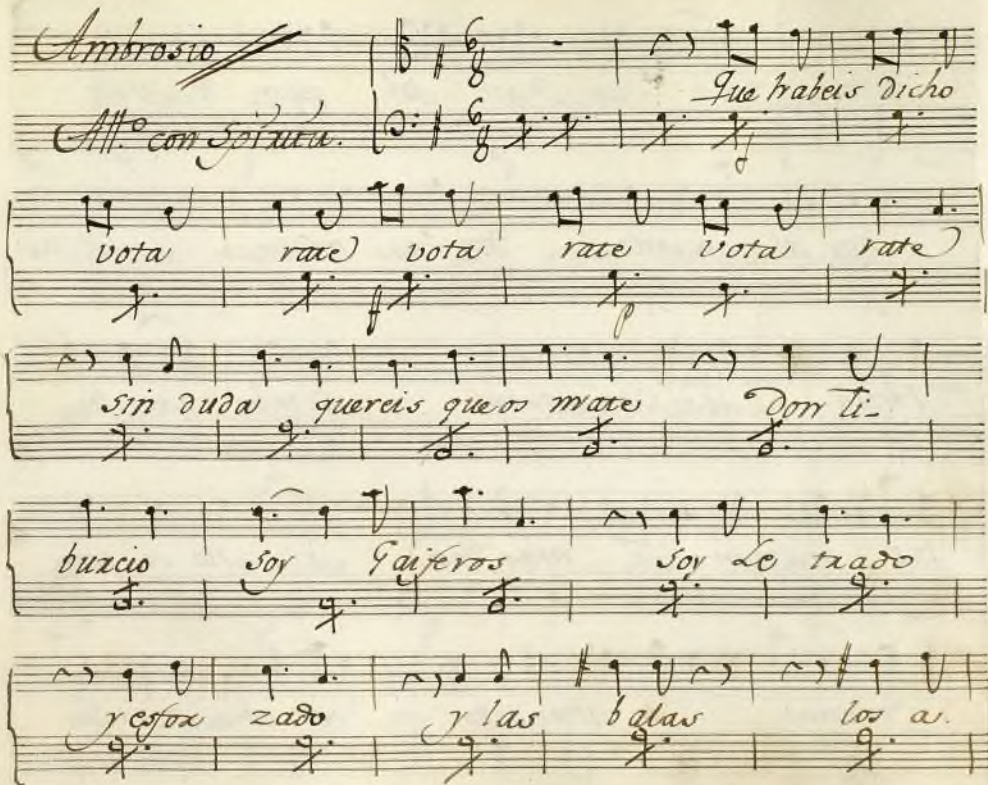 Ambrosio
Que habeis dicho
All.º con Spiritu.
vota rate vota rate vota rate
sin duda quereis que os mate Don Ti-
burcio soy Gaiferos soy Le trado
y esfor zado y las balas los a.